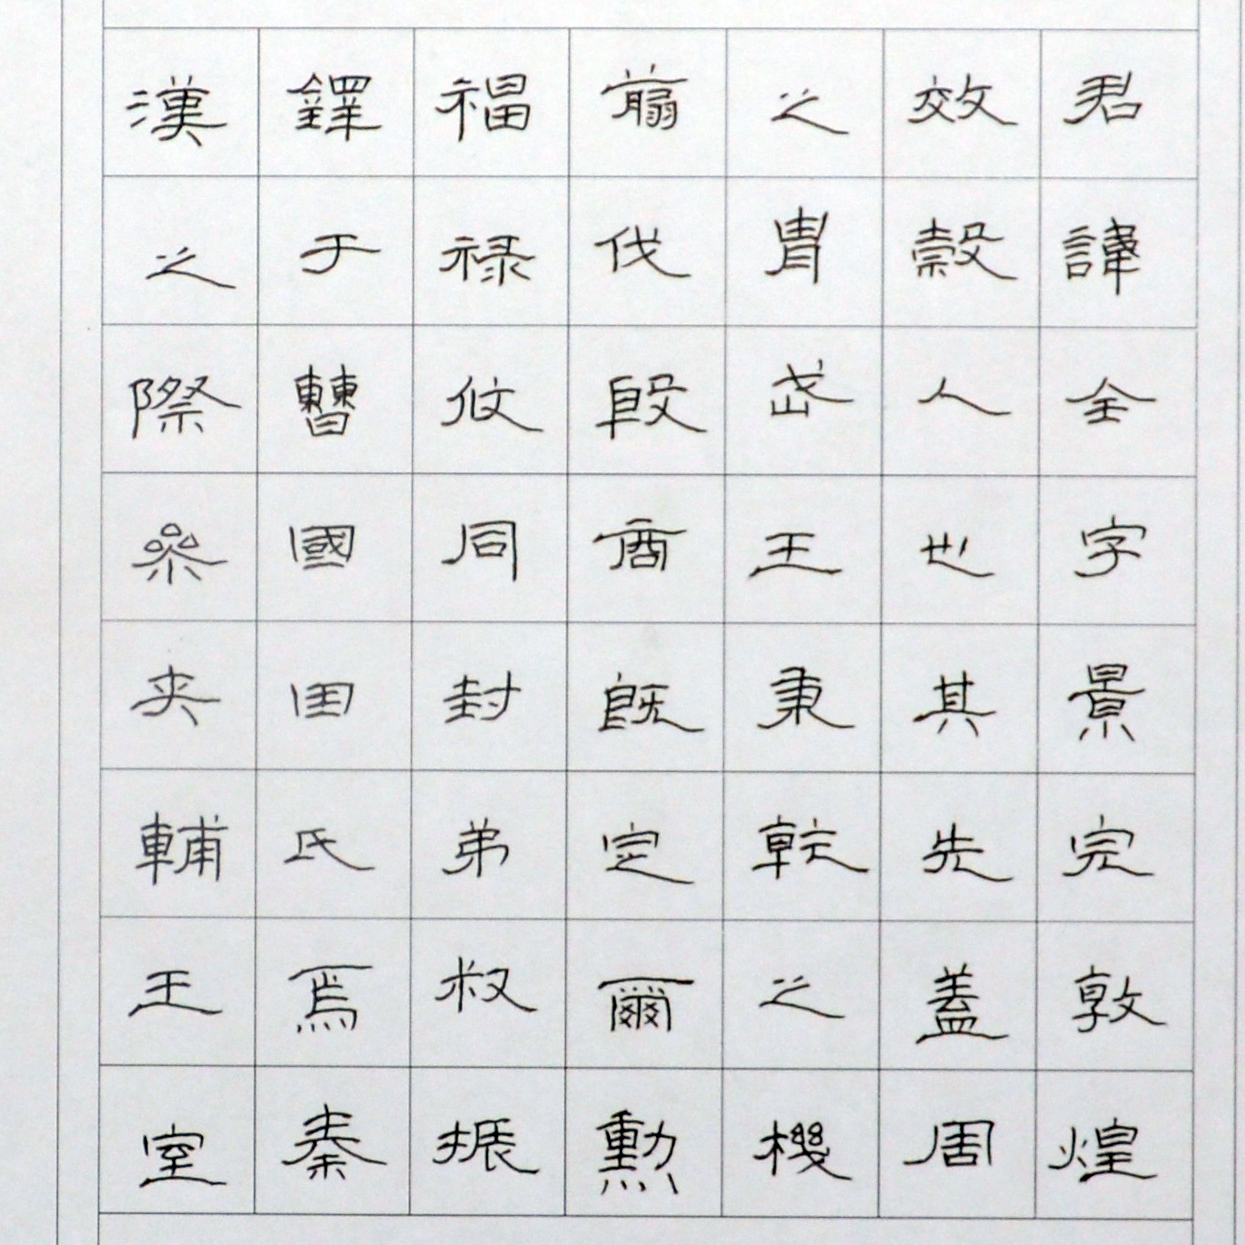 君諱全字景完敦煌
效穀人也其先蓋周
之胄武王秉乾之機
翦伐殷商既定爾勳
福禄攸同封弟叔振
鐸于曹國因氏焉秦
漢之際參夾輔王室